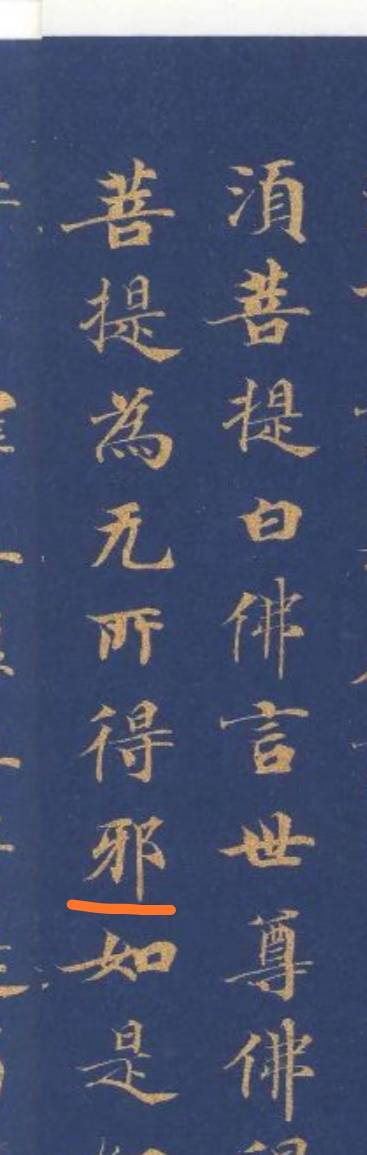 須菩提白佛言世尊佛得
菩提為无所得邪如是如